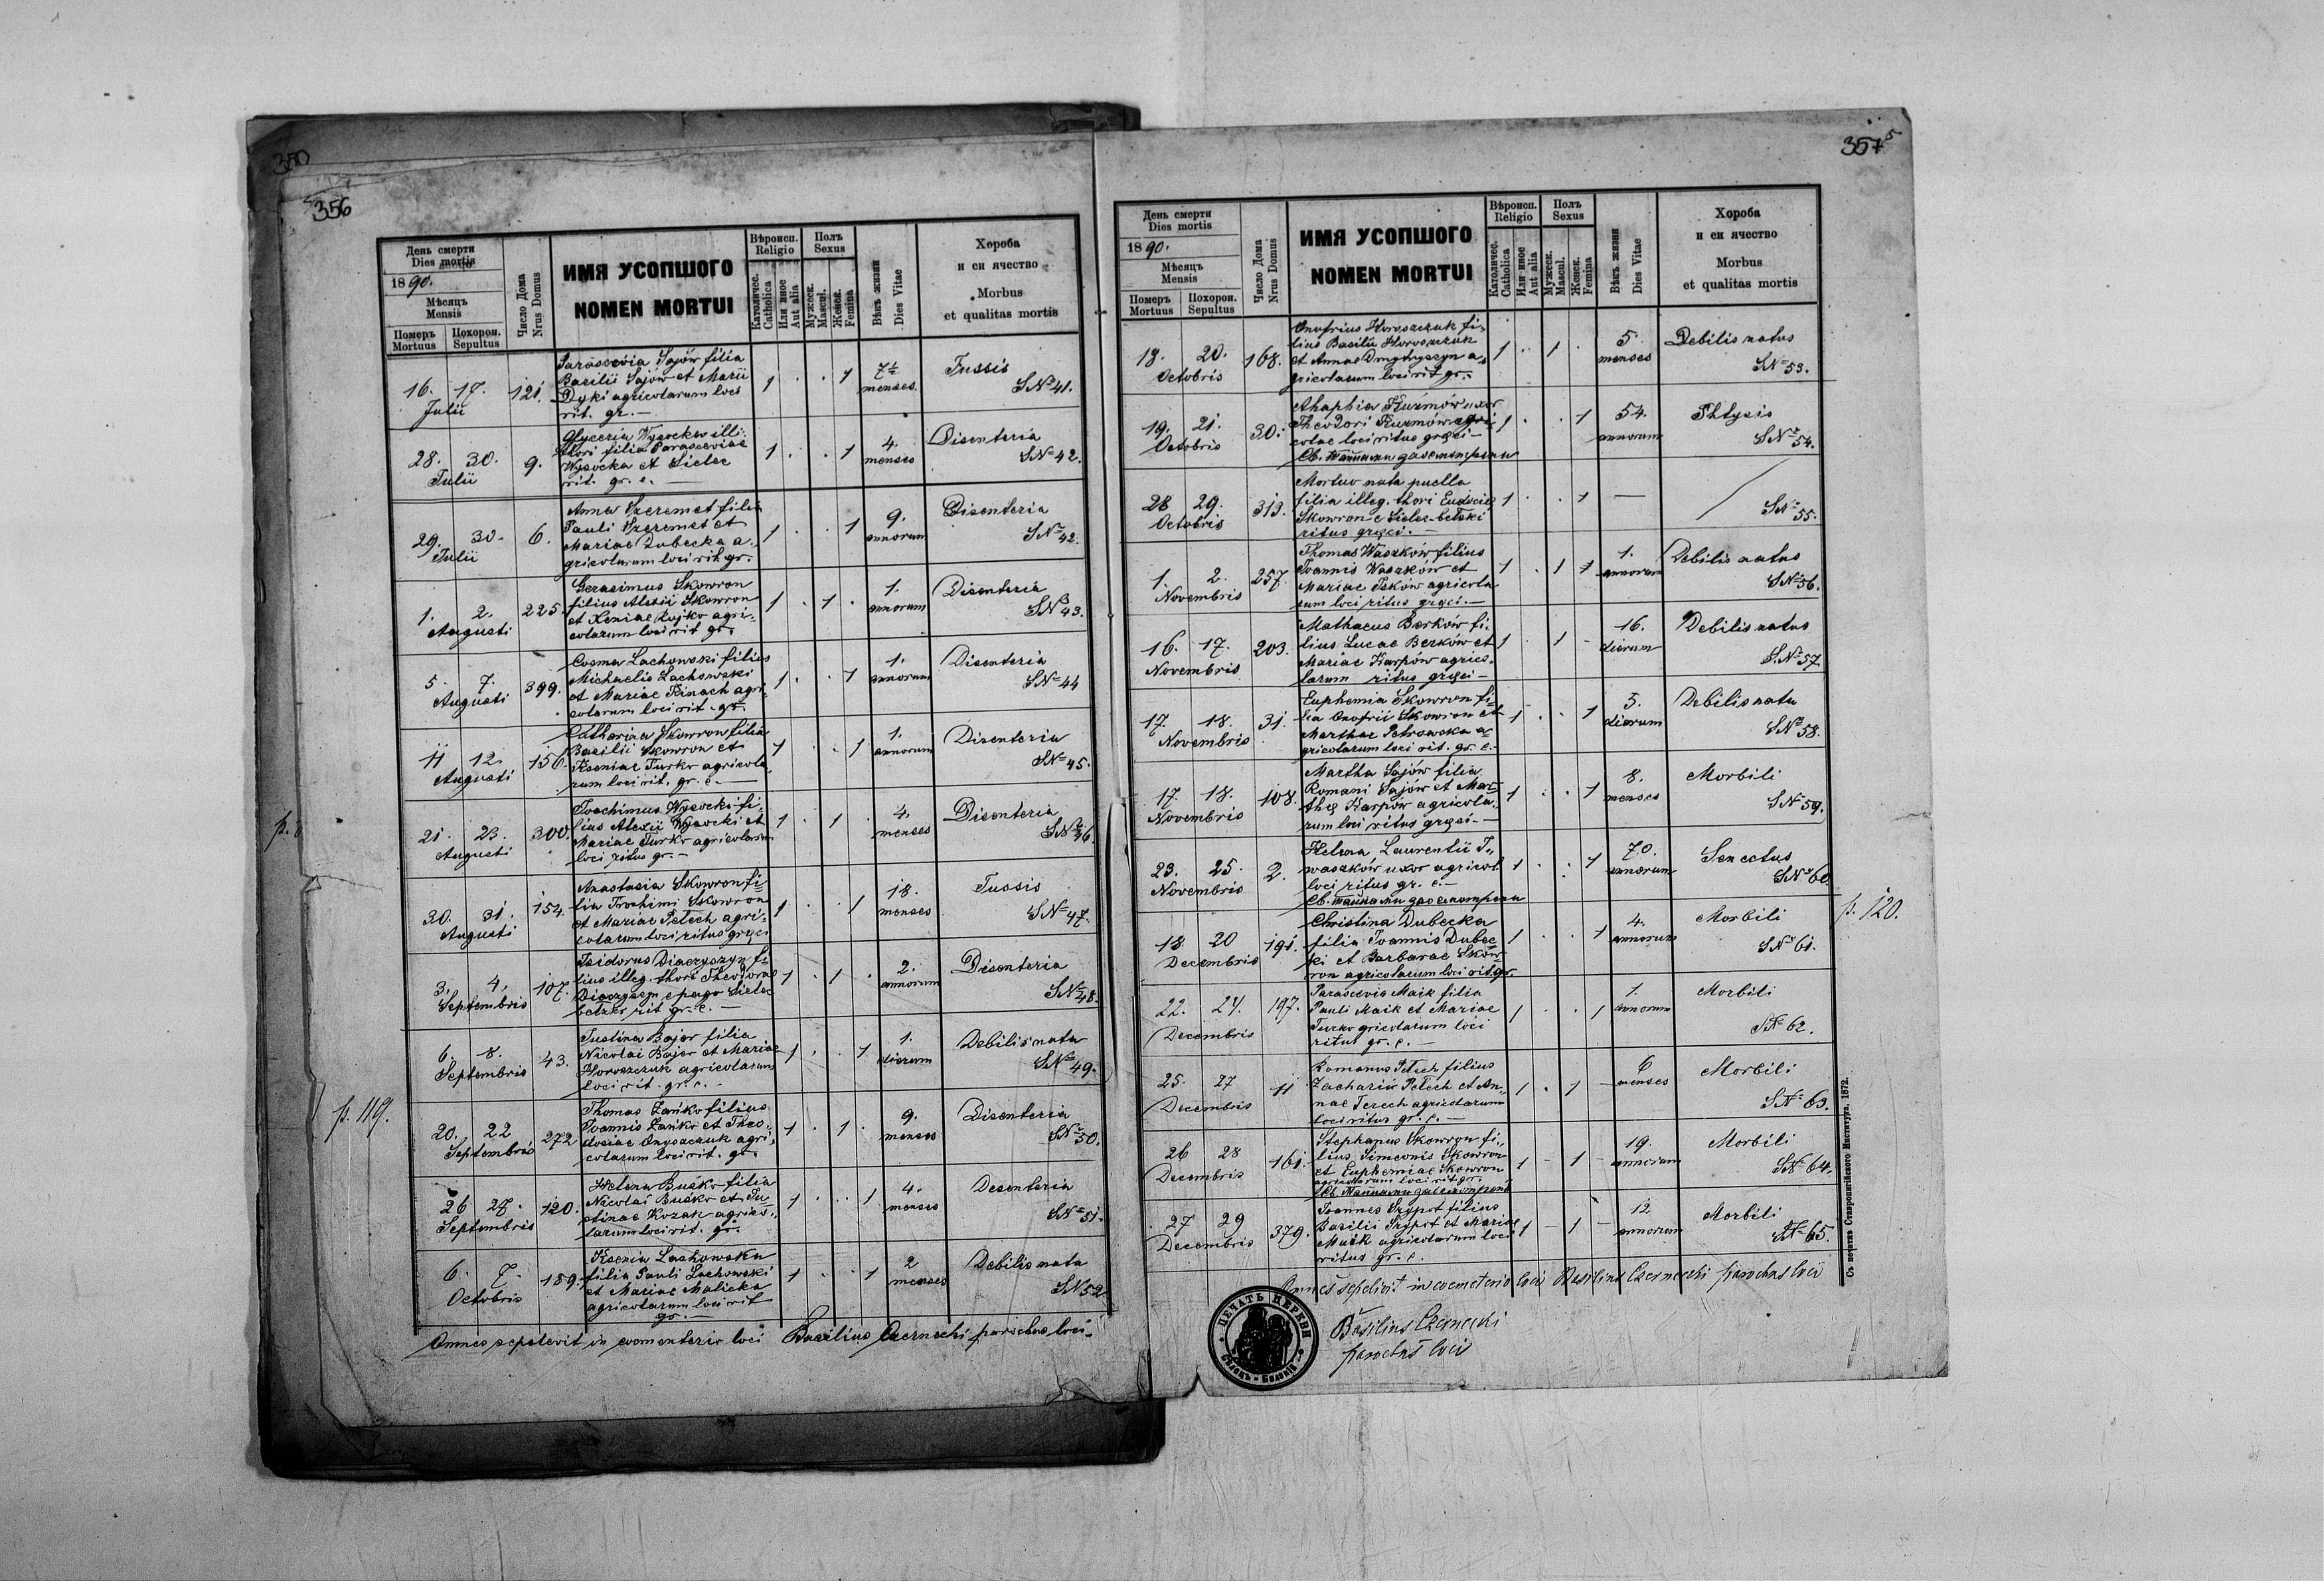 350
356
День смерти
Dies mortis
1890.
Мѣсяцъ
Mensis
Померъ
Mortuus
Похорон.
Sepultus
Число Дома
Nrus Domus
ИМЯ УСОПШОГО
NOMEN MORTUI
Вѣроисп.
Religio
Католичес.
Catholica
Или иное
Aut alia
Полъ
Sexus
Мужеск.
Mascul.
Женск.
Femina
Вѣкъ жизни
Dies Vitae
Хороба
и еи ячество
Morbus
et qualitas mortis
16. 17. Julii 121.
Parascevia Sajów filia
Basilii Sajów et Marii
Dyki agricolarum loci
rit. gr. —
1 . . 1
7½ menses.
Tussis
SNo 41.
28. 30. Julii 9.
Glyceria Wysocka illi-
thori filia Parasceviae
Wysocka et Sielec
rit. gr. c. —
1 . . 1
4. menses
Disenteria
SNo 42.
29. 30. Julii 6.
Anna Szeremet filia
Pauli Szeremet et
Mariae Dubecka a-
gricolarum loci rit. gr.
1 . . 1
9. annorum
Disenteria
SNo 42.
1. 2. Augusti 225.
Gerasimus Skowron
filius Alexii Skowron
et Xeniae Rojko agri-
colarum loci rit gr.
1 . 1 .
1. annorum
Disenteria
SNo 43.
5. 7. Augusti 399.
Cosma Lachowski filius
Michaelis Lachowski
et Mariae Kinach agri-
colarum loci rit. gr.
1 . . 1
1. annorum
Disenteria
SNo 44
11 12. Augusti 156.
Catharina Skowron filia
Basilii Skowron et
Kseniae Turko agricola-
rum loci rit. gr. c. —
1 . . 1
1. annorum
Disenteria
SNo 45.
21. 23. Augusti 300.
Joachimus Wysocki fi-
lius Alexii Wysocki et
Mariae Turko agricolarum
loci ritus gr. —
1 . 1 .
4. menses
Disenteria
SNo 46.
30. 31. Augusti 154
Anastasia Skowron fi-
lia Trochimi Skowron
et Mariae Petech agri-
colarum loci ritus gręci
1 . . 1
18. menses
Tussis
SNo 47.
3. 4. Septembris 107.
Isidorus Diaczyszyn fi-
lius illeg. thori Theodorae
Diaczyszyn e pago Sielec
bełzki rit gr. c. —
1 . 1 .
2. annorum
Disenteria
SNo 48.
6. 8. Septembris 43.
Justina Bojar filia
Nicolai Bojar et Mariae
Horoszczuk agricolarum
loci rit. gr. c. —
1 . . 1
1. dierum
Debilis nata
SNo 49.
p. 119.
20. 22 Septembris 272
Thomas Zańko filius
Joannis Zańko et Theo-
dosiae Onyszczuk agri-
colarum loci rit. gr.
1 . 1 .
9. menses
Disenteria
SNo 50.
26 27. Septembris 120.
Helena Buśko filia
Nicolai Buśko et Ju-
stinae Kozak agrico-
larum loci rit. gr.
1 . . 1
4. menses
Desenteria
SNo 51.
6. 7. Octobris 159.
Ksenia Lachowska
filia Pauli Lachowski
et Mariae Malicka
agricolarum loci rit
gr. —
1 . . 1
2 menses
Debilis nata
SN 52
Omnes sepelevit in coementerio loci Basilius Czernecki parochus loci
357
День смерти
Dies mortis
1890.
Мѣсяцъ
Mensis
Померъ
Mortuus
Похорон.
Sepultus
Число Дома
Nrus Domus
ИМЯ УСОПШОГО
NOMEN MORTUI
Вѣроисп.
Religio
Католичес.
Catholica
Или иное
Aut alia
Полъ
Sexus
Мужеск.
Mascul.
Женск.
Femina
Вѣкъ жизни
Dies Vitae
Хороба
и еи ячество
Morbus
et qualitas mortis
18. 20. Octobris 168.
Onufrius Horoszczuk fi-
lius Basilii Horoszczuk
et Annae Dmytryszyn a-
gricolarum loci rit gr.
1 . 1 .
5 menses
Debilis natus
SNo 53.
19. 21. Octobris 30.
Ahaphia Kuzmów uxor
Theodori Kuzmów agri-
colae loci ritus gręci —
1 . . 1
54. annorum
Phtysis
SNo 54.
28 29. Octobris 313.
Mortuo nata puella
filia illeg. thori Eudociae
Skowron e Sielec-bełski
ritus gręci. —
1 . . 1
—
SNo 55.
1. 2. Novembris 257.
Thomas Waszków filius
Joannis Waszków et
Mariae Ićków agricola
rum loci ritus gręci. —
1 . 1 1
1. annorum
Debilis natus
SNo 56.
16. 17. Novembris 203.
Mathaeus Berków fi-
lius Lucae Berków et
Mariae Karpów agrico-
larum ritus gręci —
1 . 1 -
16. dierum
Debilis natus
S.No 57.
17. 18. Novembris 31.
Euphemia Skowron fi-
lia Onofrii Skowron et
Marthae Petrowska a-
gricolarum loci rit. gr. c. -
1 . . 1
5. dierum
Debilis nata
SNo 58.
17. 18. Novembris 108.
Martha Sajów filia
Romani Sajów et Mar-
thę Karpow agricola-
rum loci ritus gręci. —
1 . . 1
8. menses
Morbili
SNo 59.
23. 25. Novembris 2.
Helena Laurentii I-
waszków uxor agricol.
loci ritus gr. c. —
1 . . 1
70. annorum
Senectus
SNo 60.
p. 120.
18. 20 Decembris 191.
Christina Dubecka
filia Joannis Dubec
ki et Barbarae Skow-
ron agricolarum loci rit. gr.
1 . . 1
4. annorum
Morbili
SNo 61.
22. 24. Decembris 197.
Parascevia Maik filia
Pauli Maik et Mariae
Turko gricolarum loci
ritus gr. c. —
1 . . 1
1. annorum
Morbili
SNo 62.
25. 27 Decembris 11
Romanus Petech filius
Zachariii Petech et An-
nae Terech agricolarum
loci ritus gr. c. —
1 . 1
6 menses
Morbili
SNo 63.
26 28 Decembris 161.
Stephanus Skowron fi-
lius Simeonis Skowron
et Euphemiae Skowron
agricolarum loci rit. gr.
1 - 1 -
19. annorum
Morbili
SNo 64.
27 29 Decembris 379.
Joannes Przypot filius
Basilii Przypot et Mariae
Maik agricolarum loci
ritus gr. c.
1 - 1 -
12 annorum
Morbili
SNo 65.
Omnes sepelivit in coemeterio loci Basilius Czernecki parochus loci
Basilius Czernecki
parochus loci
ПЕЧАТЬ ЦЕРКВИ
Съ печатнѣ Ставропигійского Института. 1872.